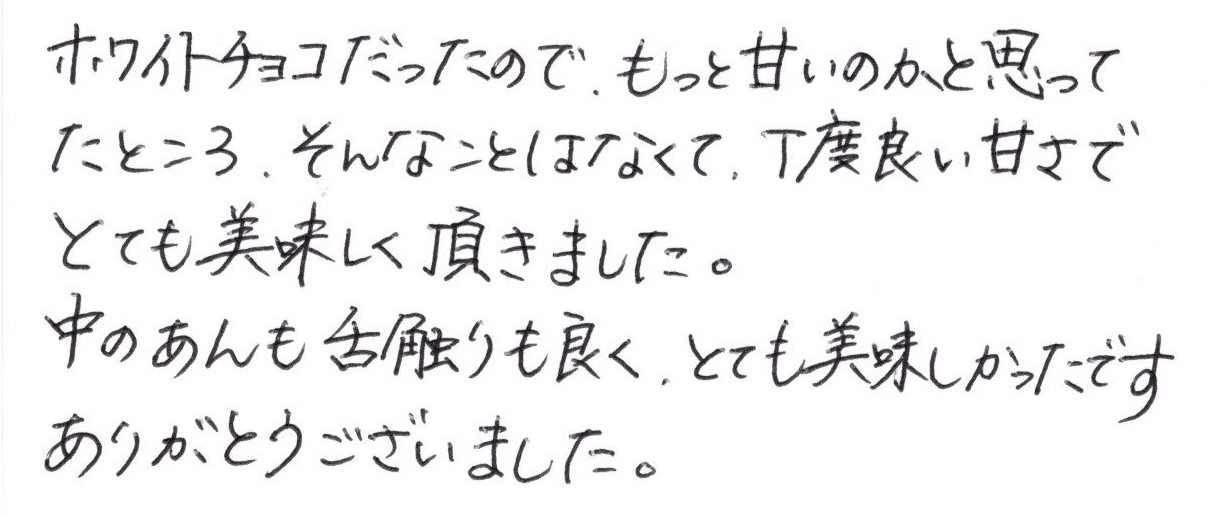 ホワイトチョコだったので、もっと甘いのかと思って
たところ、そんなことはなくて、丁度良い甘さで
とても美味しく頂きました。
中のあんも舌触りも良く、とても美味しかったです
ありがとうございました。